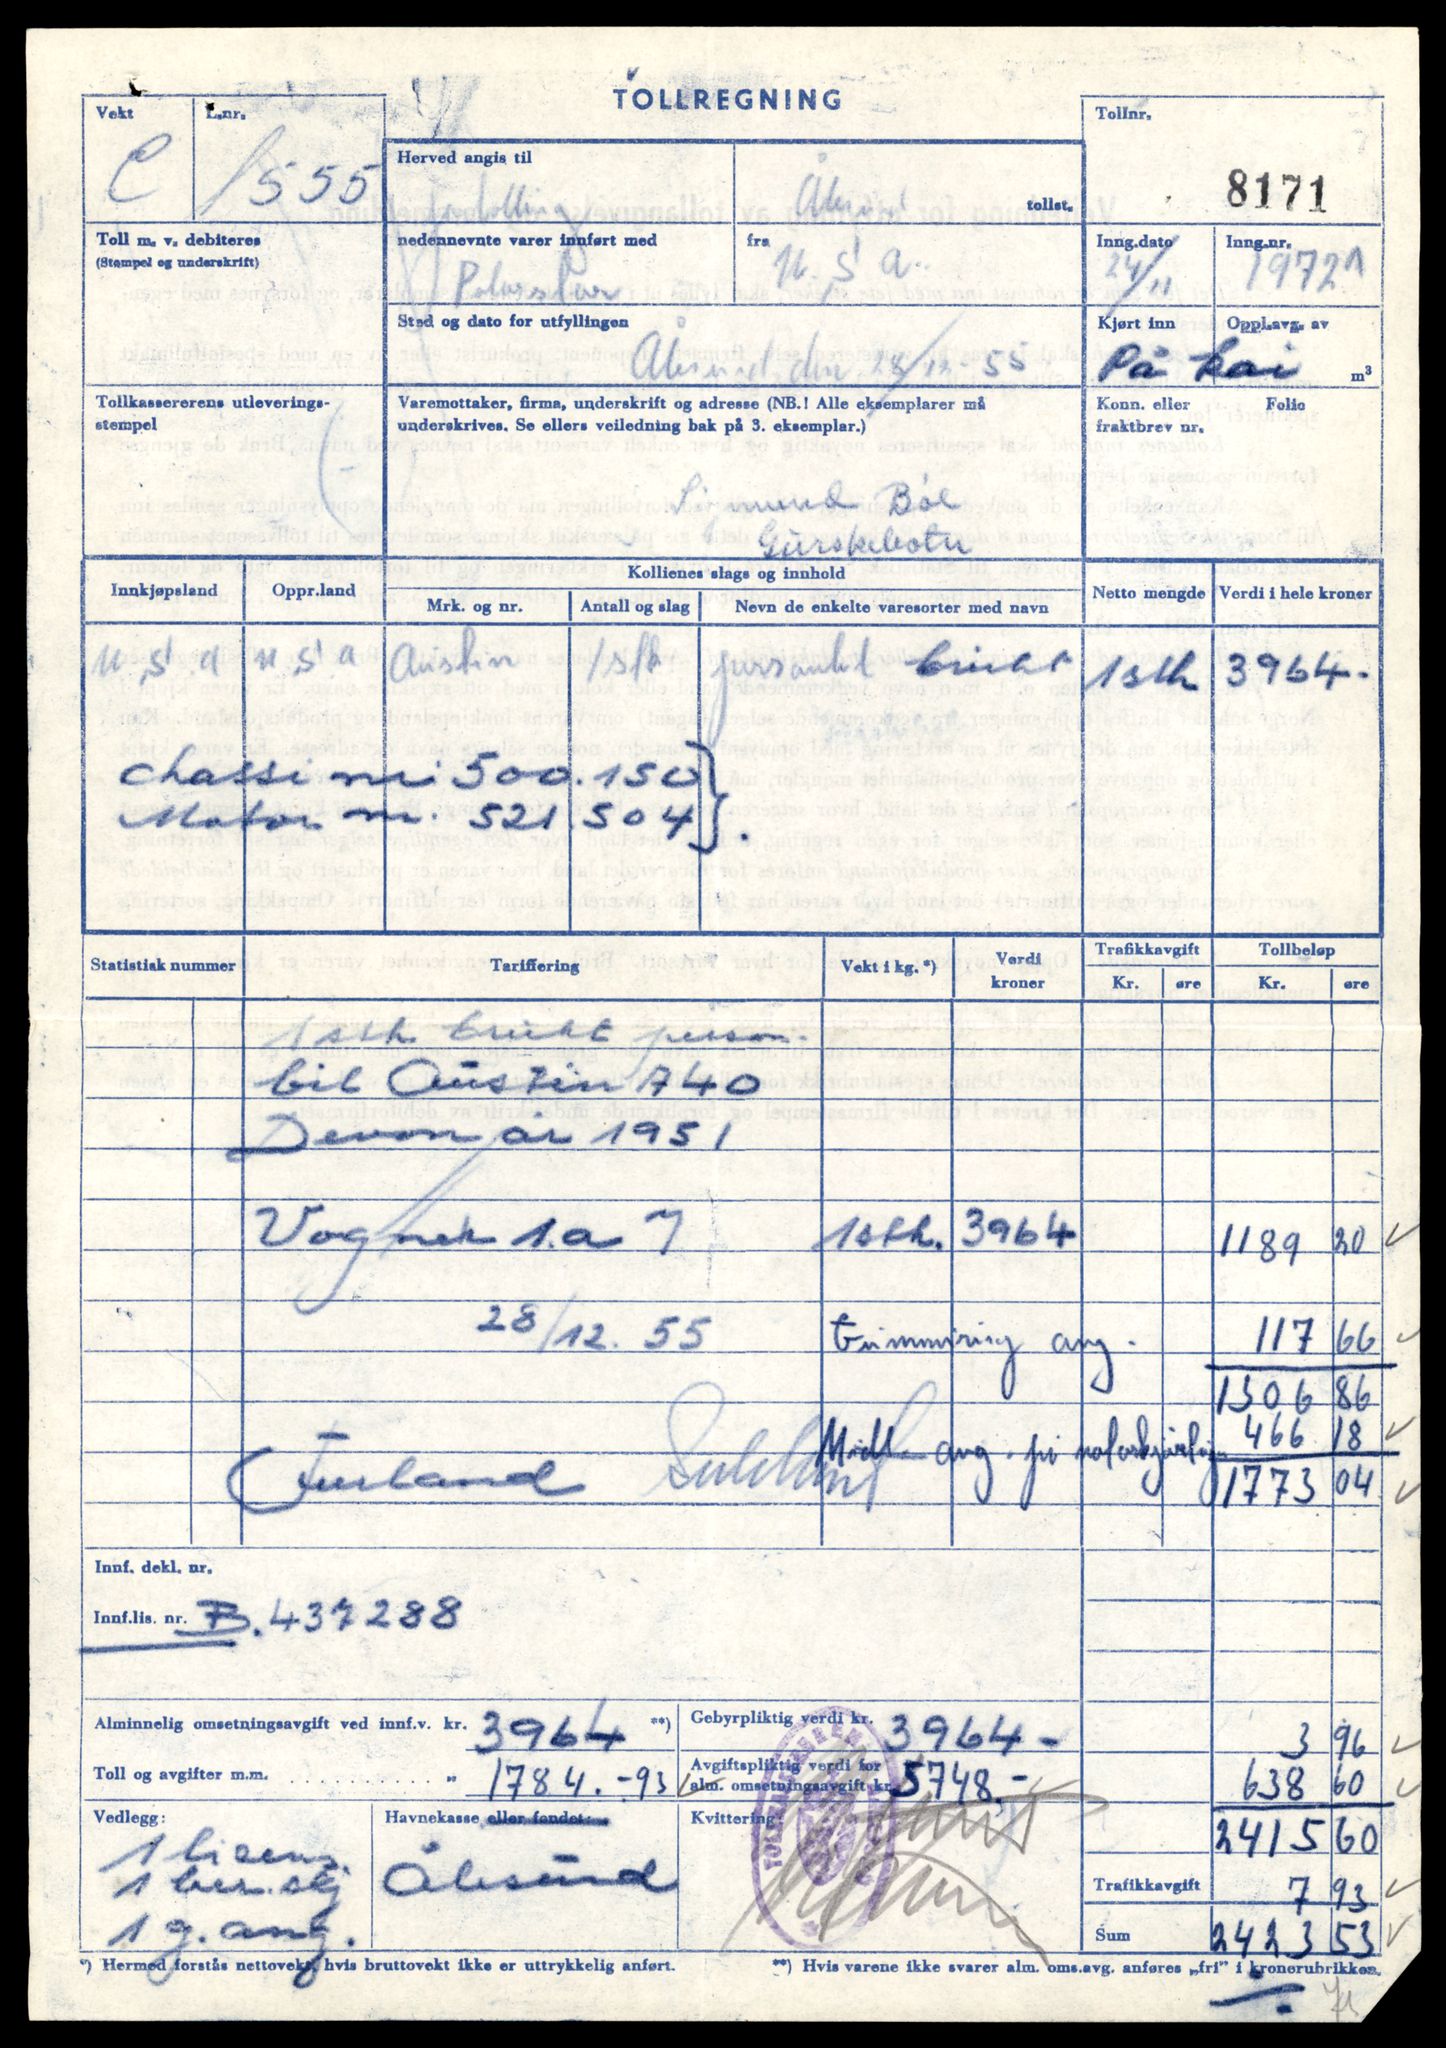 TOLLREGNING
Vekt
L.nr.
Tollnr.
C
1555
8171
Herved angis til
tollst.
Toll m. v. debiteres
(Stempel og underskrift)
nedennevnte varer innført med
fra
U. S a.
Inng.dato
Inng.nr.
24/11
1972
Polarstar
Sted og dato for utfyllingen
Ålesund den 28/12-55
Kjørt inn
Oppl.avg. av
På kai
m³
Tollkassererens utleverings-
stempel
Varemottaker, firma, underskrift og adresse (NB.! Alle eksemplarer må
underskrives. Se ellers veiledning bak på 3. eksemplar.)
Konn. eller
fraktbrev nr.
Folio
Sigmund Bøe
Gurskebotn
Innkjøpsland
Oppr.land
Kollienes slags og innhold
Mrk. og nr.
Antall og slag
Nevn de enkelte varesorter med navn
Netto mengde
Verdi i hele kroner
U S a
U S a
Austin
1 stk
brukt
1 stk
3964.-
chassi nr. 500.150
Motor nr. 521.504
Statistisk nummer
Tariffering
Vekt i kg. *)
Verdi
kroner
Trafikkavgift
Kr.
øre
Tollbeløp
Kr.
øre
1 stk brukt person-
bil Austin A40
Devon år 1951
Vogner 1.a
1 stk.
3964
1189 20
28/12. 55
avg.
117 66
1306 86
avg. på
466 18
1773 04
Innf. dekl. nr.
Innf.lis. nr. B. 437288
Alminnelig omsetningsavgift ved innf.v. kr. 3964 **)
Gebyrpliktig verdi kr. 3964 -
3 96
Toll og avgifter m.m. . . . . . . . . . . . . „ 1784.-93
Avgiftspliktig verdi for
alm. omsetningsavgift kr. 5748.-
638 60
Vedlegg:
Havnekasse eller fondet:
Kvittering:
2415 60
1 lisens.
1 ber. skj
1 g. ang.
Ålesund
Trafikkavgift
7 93
Sum
2423 53
*) Hermed forstås nettovekt, hvis bruttovekt ikke er uttrykkelig anført.
**) Hvis varene ikke svarer alm. oms.avg. anføres „fri” i kronerubrikken.